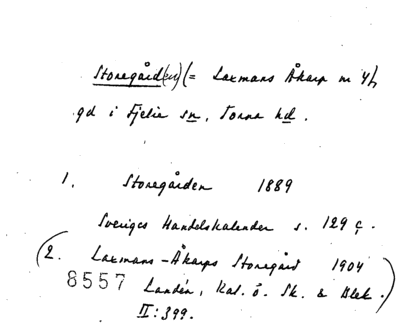 Storegård(en) (= Laxmans Åkarp m 4/
gd i Fjelie sn, Torna hd.
1. Storegården 1889
Sveriges Handelskalender s. 129 ç.
(2. Laxmans-Åkarps Storegård 1904
8557 Landén, Kal. ö. Sk. & Blek.)
II:399.